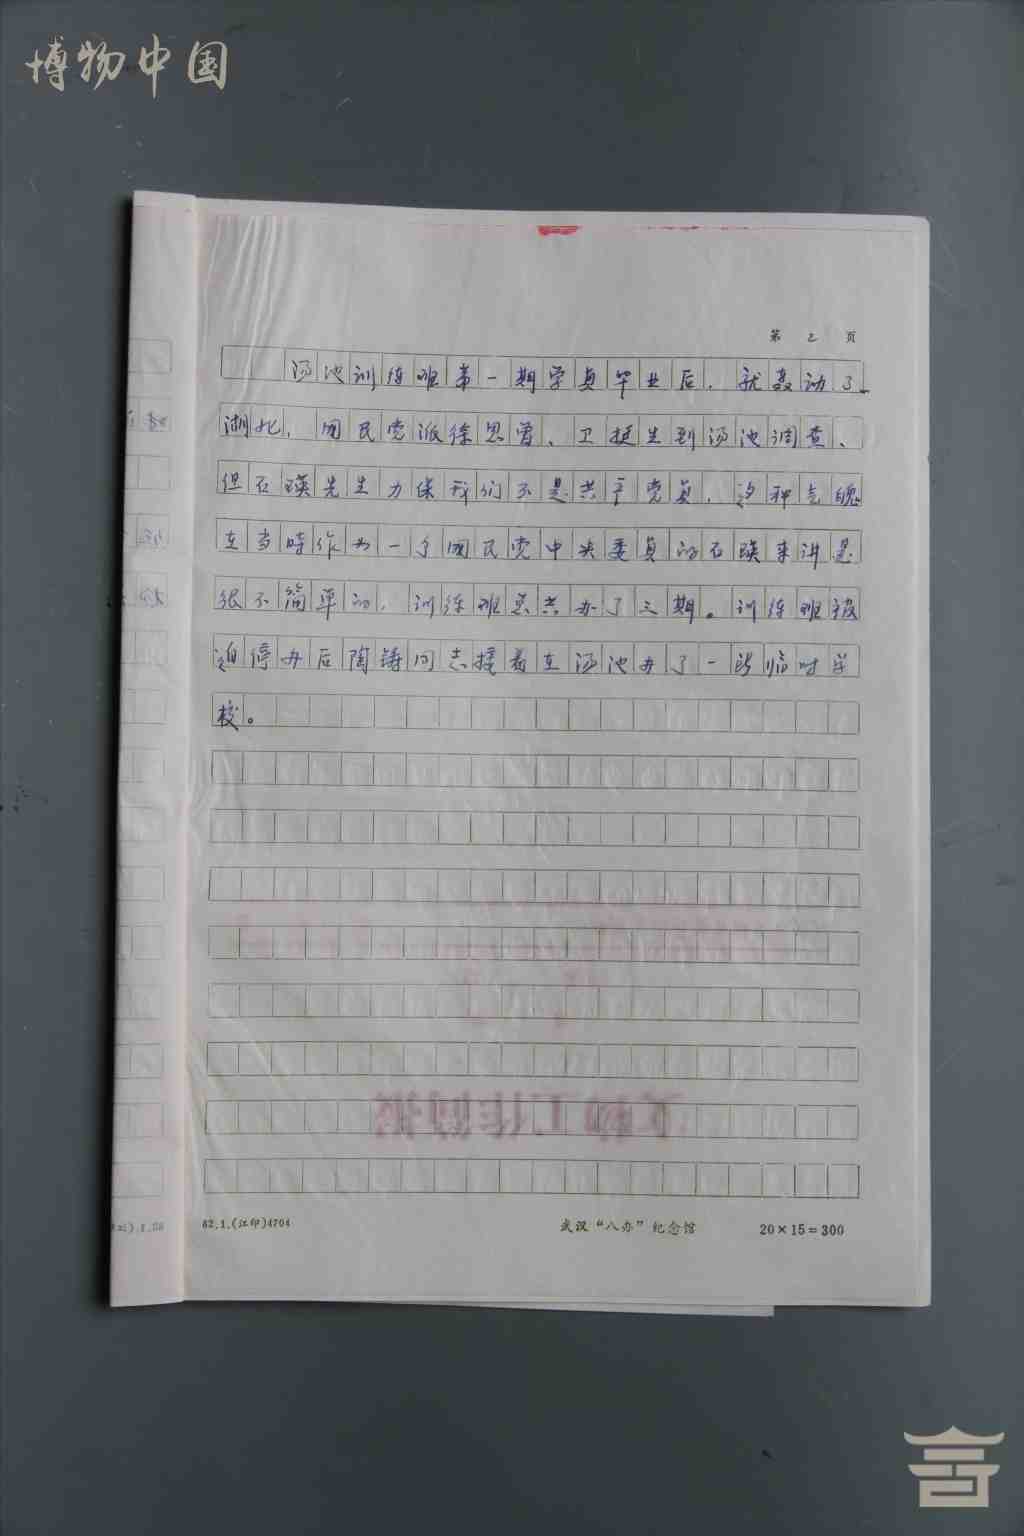 博物中国
第 2 页
汤池训练班第一期学员毕业后，就轰动了
湖北，国民党派徐恩曾、卫挺生到汤池调查、
但石瑛先生力保我们不是共产党员，这种气魄
在当時作为一个国民党中央委员的石瑛来讲是
很不简单的，训练班总共办了三期。训练班被
迫停办后陶铸同志接着在汤池办了一所临时学
校。
文物工作简报
82.1.(江印)4704
武汉“八办”纪念馆
20×15=300